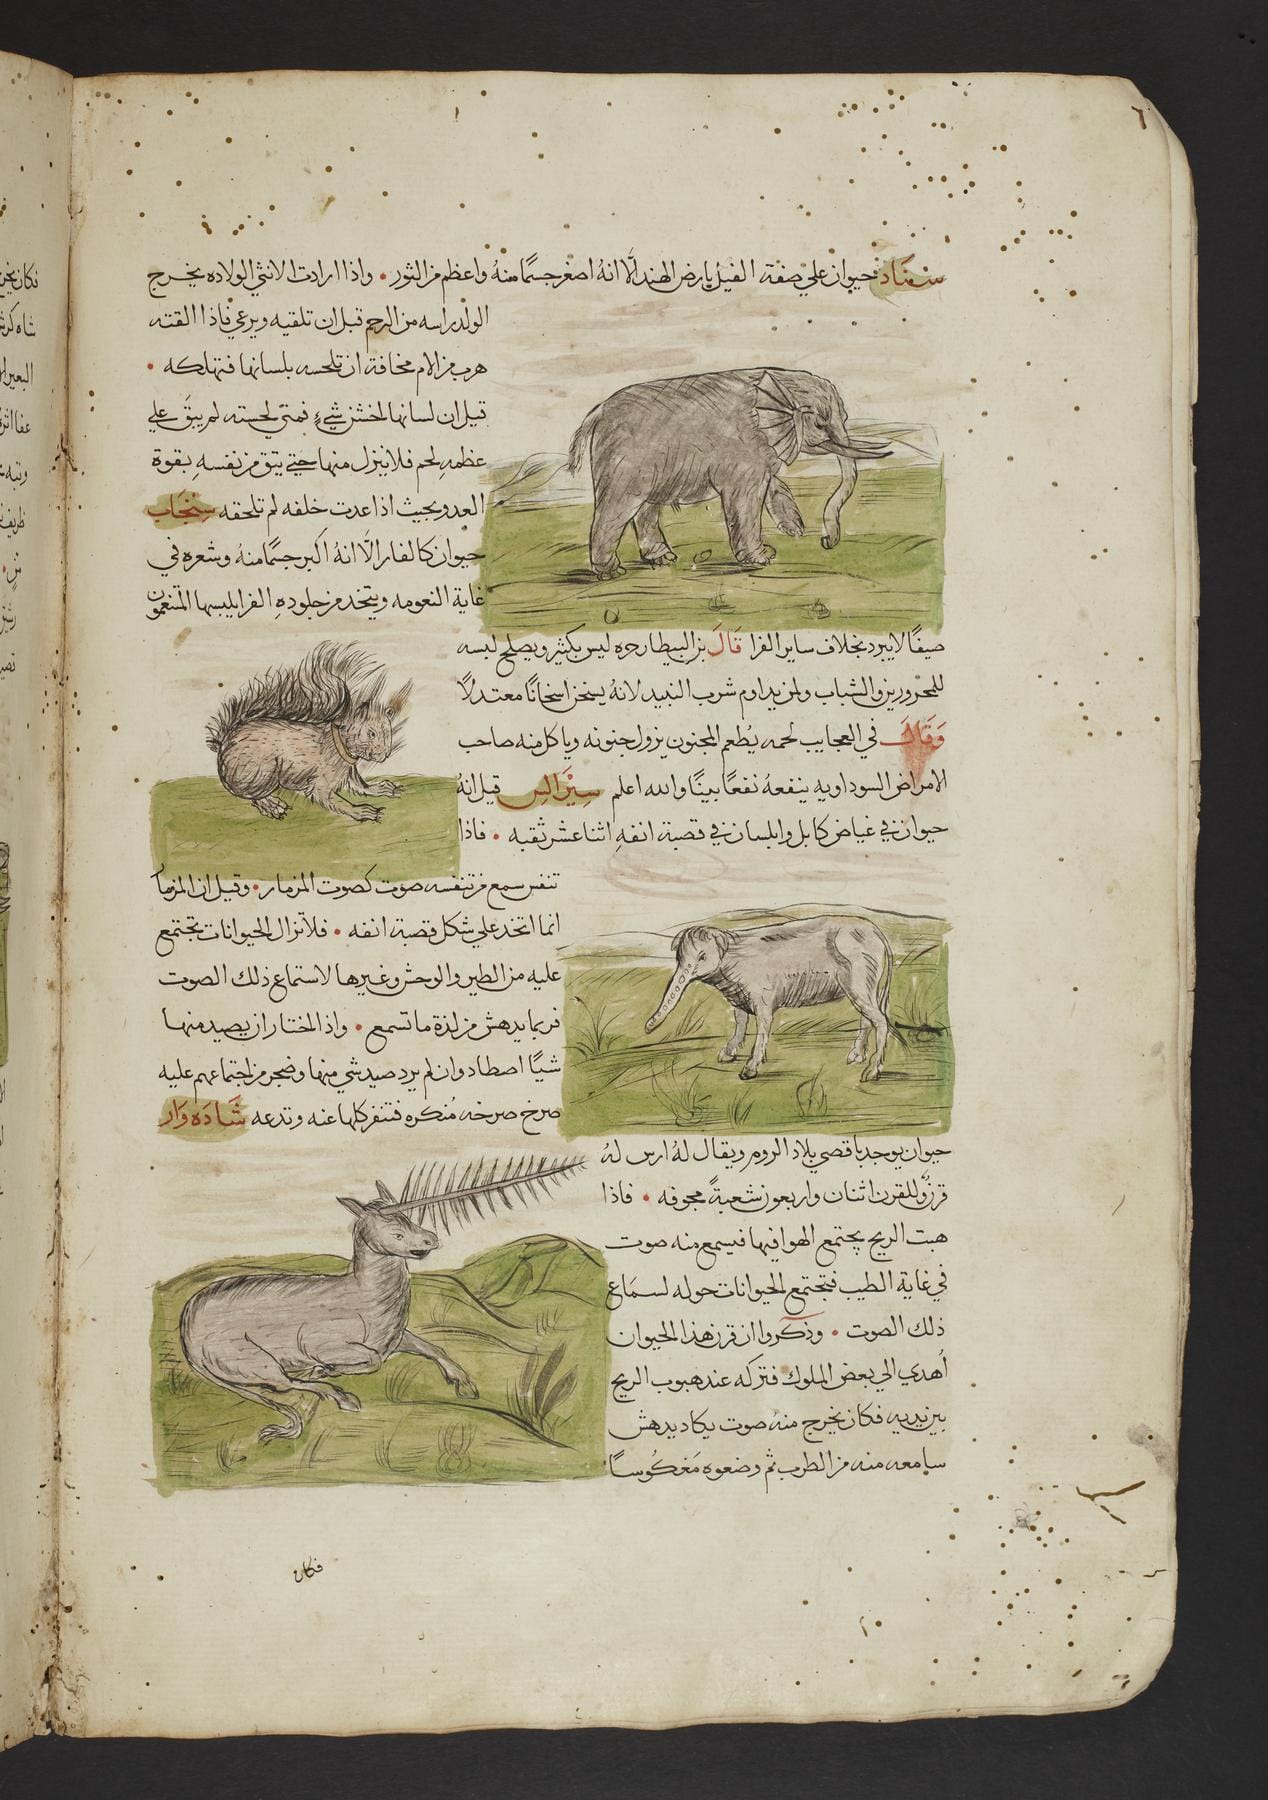 سناد حيوان علي صفة الفيل بارض الهند الّا انهُ اصغر جسمًا منهُ واعظم من الثور • واذا ارادت الانثي الولاده يخرج
الولد راسه من الرحم قبل ان تلقيه ويرعي فاذا القته
هرب من الام مخافة ان تلحسه بلسانها فتهلكه •
قيل ان لسانها اخشن شيءٍ فمتي لحسته لم يبقَ علي
عظمهِ لحم فلا ينزل منها حتي يثق من نفسهِ بقوة
العدو بحيث اذا عدت خلفه لم تلحقه سِنجَاب
حيوان كالفار الّا انهُ اكبر جسمًا منهُ وشعره في
غاية النعومه ويتخد من جلودهِ الفرا يلبسها المتنعمون
صيفًا لا يبرد بخلاف ساير الفرا قَالَ بن البيطار حره ليس بكثير ويصلح لبسه
للمحرورين والشباب ولمن يداوم شرب النبيد لانهُ يسخن اسخانًا معتدلًا
وَقَالَ في العجايب لحمه يُطعم المجنون يزول جنونه وياكل منه صاحب
الامراض السوداويه ينفعهُ نفعًا بينًا والله اعلم سِيْرَانس قيل انهُ
حيوان في غياض كابل وابلسان في قصبة انفهِ اثنا عشر ثقبه • فاذا
تنفس سمع من تنفسه صوت كصوت المزمار • وقيل ان المزمار
انما اتخد علي شكل قصبة انفه • فلا تزال الحيوانات تجتمع
عليه من الطير والوحش وغيرها لاستماع ذلك الصوت
فربما يدهش من لذة ما تسمع • واذا اختار ان يصيد منها
شيًا اصطاد وان لم يرد صيد شي منها وضجر من اجتماعهم عليه
صرخ صرخه مُنكره فتنفر كلها عنه وتدعه شَادَه وَار
حيوان يوجد باقصي بلاد الروم ويقال لهُ ارس لهُ
قرنٌ وللقرن اثنان واربعون شعبةً مجوفه • فاذا
هبت الريح يجتمع الهوا فيها فيسمع منه صوت
في غاية الطيب فتجتمع الحيوانات حوله لسمَاع
ذلك الصوت • وذكروا ان قرن هذا الحيوان
اُهدي الي بعض الملوك فتركه عند هبوب الريح
بين يديه فكان يخرج منهُ صوت يكاد يدهش
سامعه منه من الطرب ثم وضعوه مَعْكُوسًا
فكان